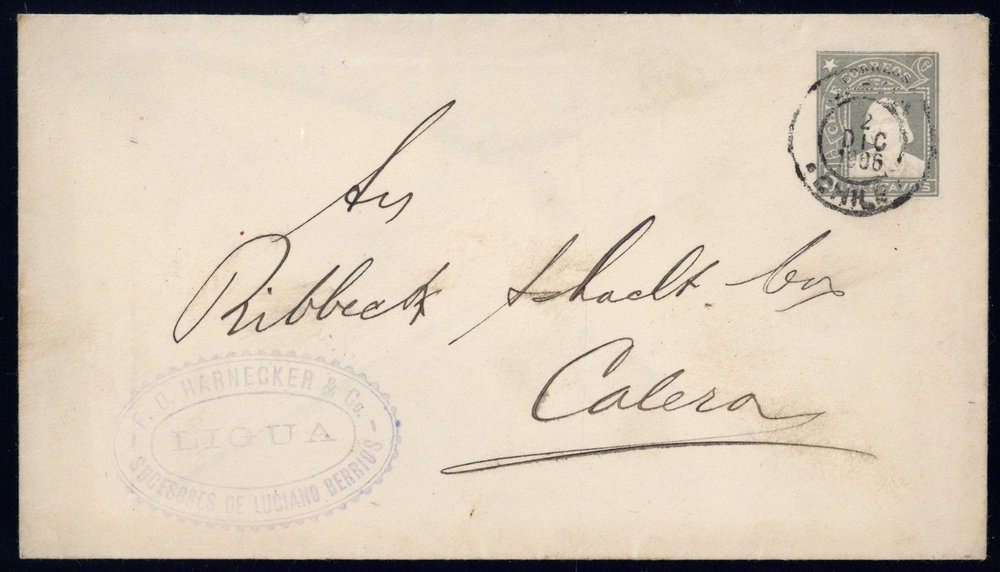 CORREOS
2
DIC
906
CHILE
Srs
Ribbeck Schacht
Calera
F. O. HARNECKER & Co.
LIGUA
SUCESORES DE LUCIANO BERRIOS